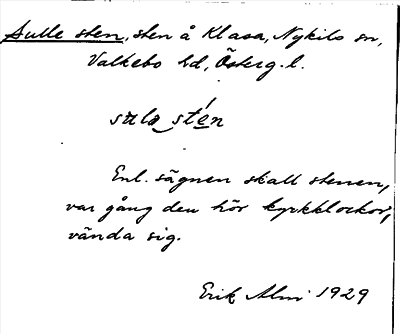 Sulle sten, sten å Klasa, Nykils sn,
Valkebo hd, Österg. l.
stén
Enl. sägnen skall stenen,
var gång den hör kyrkklockor,
vända sig.
Erik Alm 1929